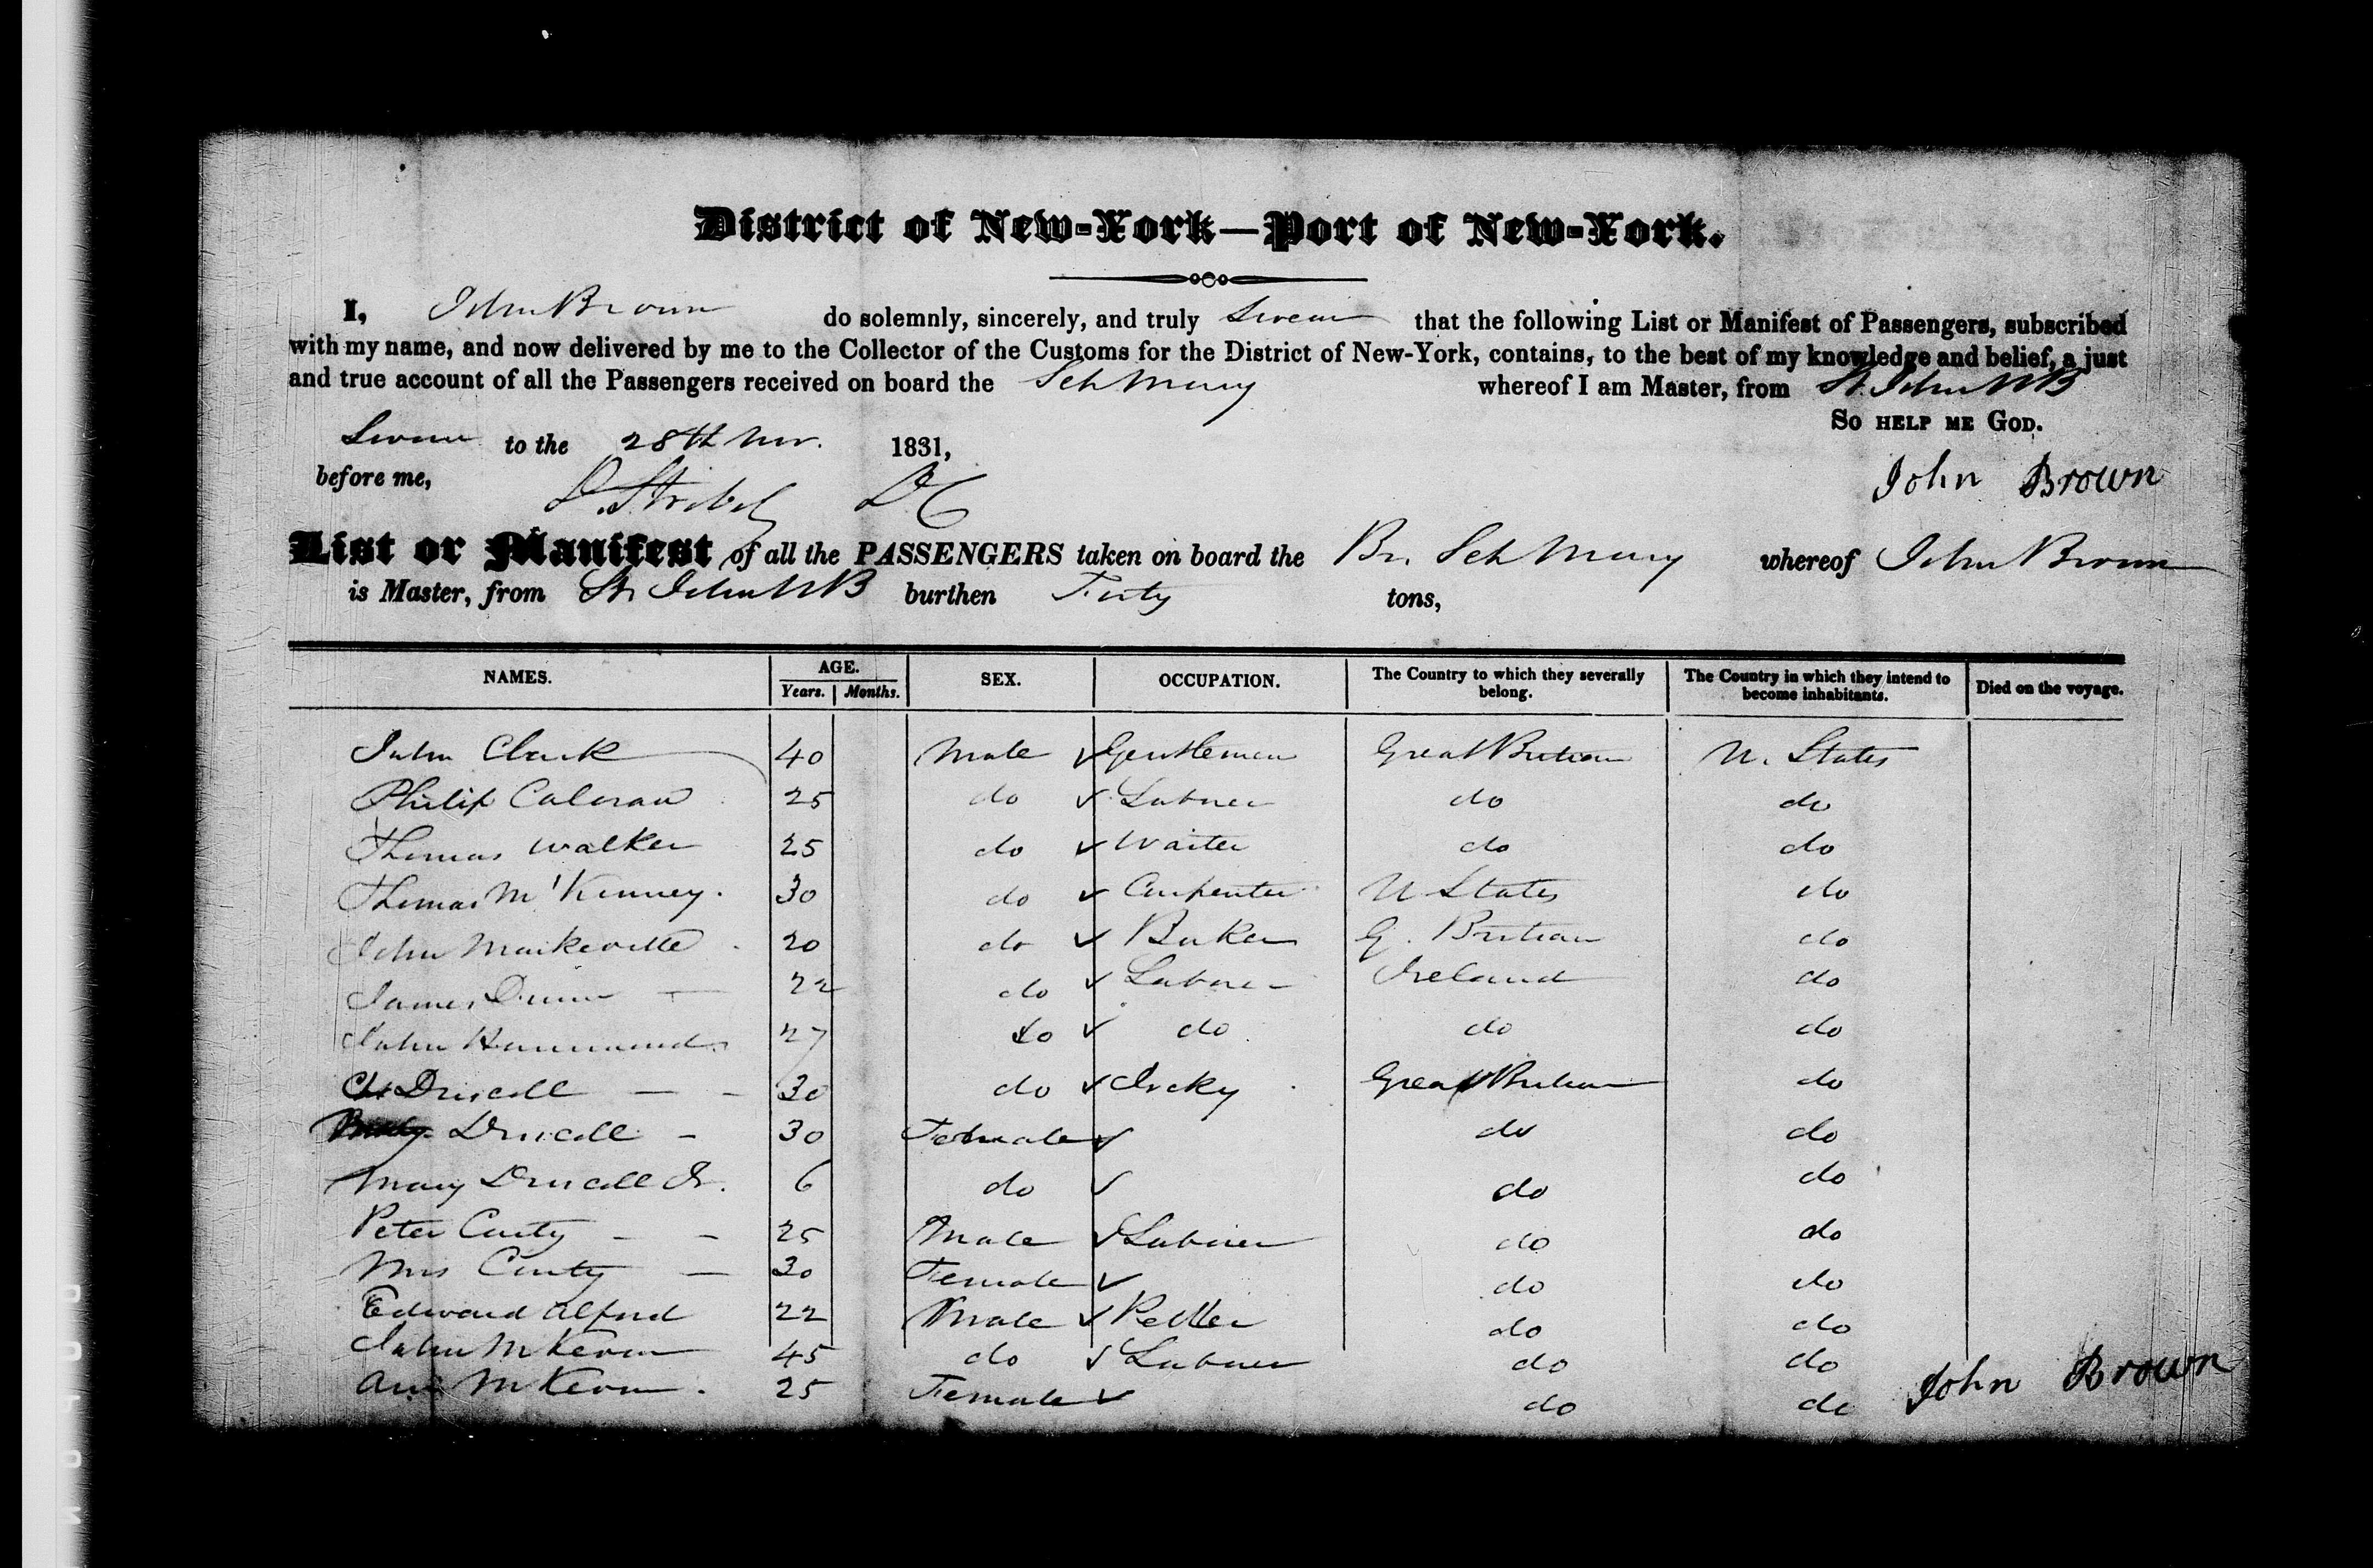 District of New-York—Port of New-York.
I, John Brown do solemnly, sincerely, and truly Swear that the following List or Manifest of Passengers, subscribed
with my name, and now delivered by me to the Collector of the Customs for the District of New-York, contains, to the best of my knowledge and belief, a just
and true account of all the Passengers received on board the Sch Mary whereof I am Master, from St. John NB
So help me God.
Sworn to the 28th Nov. 1831,
before me, DC John Brown
List or Manifest of all the PASSENGERS taken on board the Br. Sch Mary whereof John Brown
is Master, from St John NB burthen tons,
NAMES. AGE. Years. Months. SEX. OCCUPATION. The Country to which they severally belong. The Country in which they intend to become inhabitants. Died on the voyage.
John Clark 40 Male Gentleman Great Britain U. States
Philip 25 do Laborer do do
Thomas Walker 25 do Waiter do do
Thomas M'Kinney. 30 do Carpenter U States do
John 20 do Baker G. Britain do
James Dunn 22 do Laborer Ireland do
John Hammond 27 do do do do
Driscoll 30 do Great Britain do
Driscoll 30 Female do do
Mary Driscoll Jr. 6 do do do
Peter Carty 25 Male Laborer do do
Mrs Carty 30 Female do do
Edward Alford 22 Male Pedler do do
John McKeron 45 do Laborer do do
Ann McKeron. 25 Female do do
John Brown